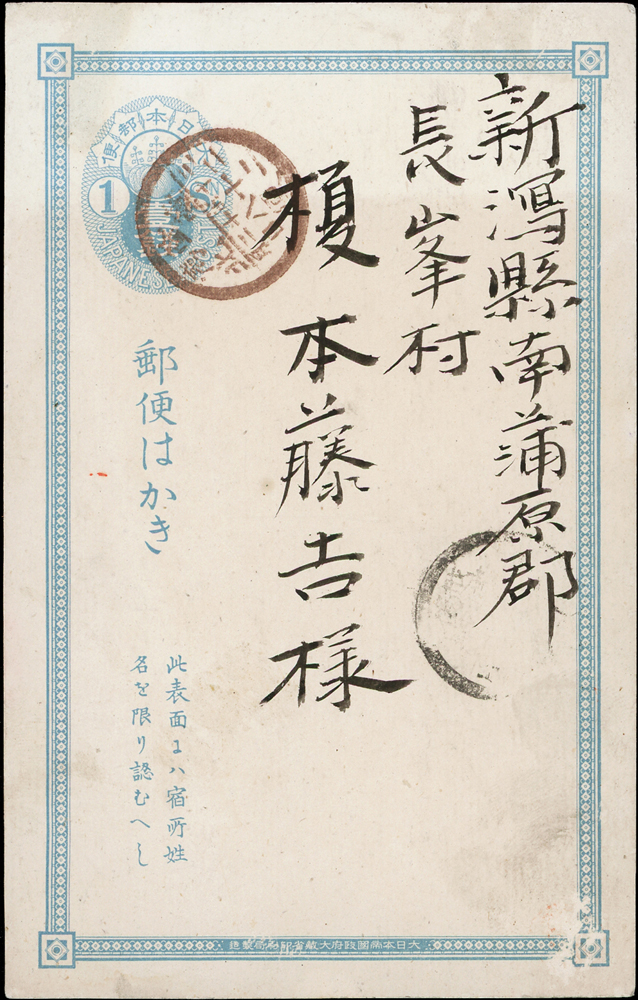 新潟縣南蒲原郡
長峯村
榎本藤吉様
日本郵便
1 SEN
JAPANESE
郵便はかき
此表面ニハ宿所姓
名を限り認むへし
大日本帝國政府大蔵省印刷局製造